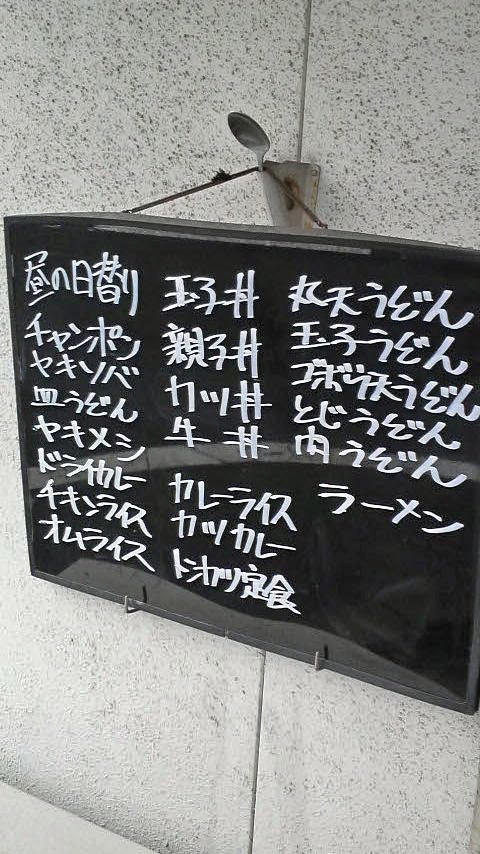 昼の日替り
チャンポン
ヤキソバ
皿うどん
ヤキメシ
ドライカレー
チキンライス
オムライス
玉子丼
親子丼
カツ丼
牛丼
カレーライス
カツカレー
トンカツ定食
丸天うどん
玉子うどん
ゴボウ天うどん
とじうどん
肉うどん
ラーメン